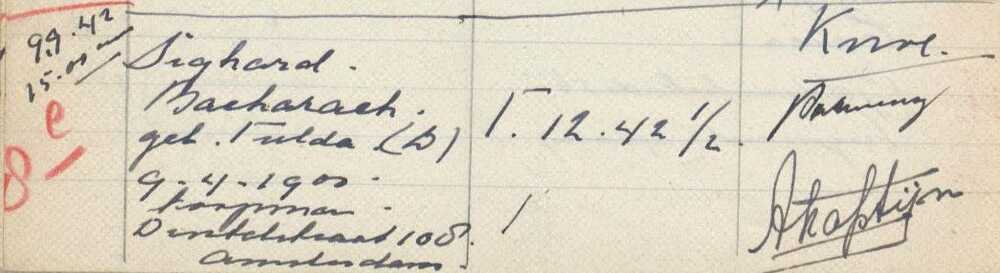 9.9.42
15.00
8 e
Sighard.
Bacharach.
geb. Fulda (D)
9-4-1900.
koopman.
Dintelstraat 108.
Amsterdam.
T. 12.42 1/2
1